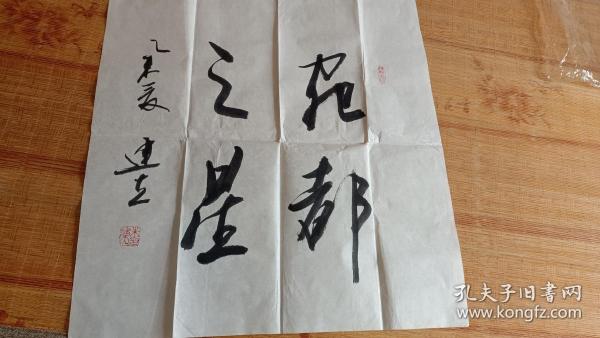 宛都
之星
乙未夏
建立
孔夫子旧书网
www.kongfz.com